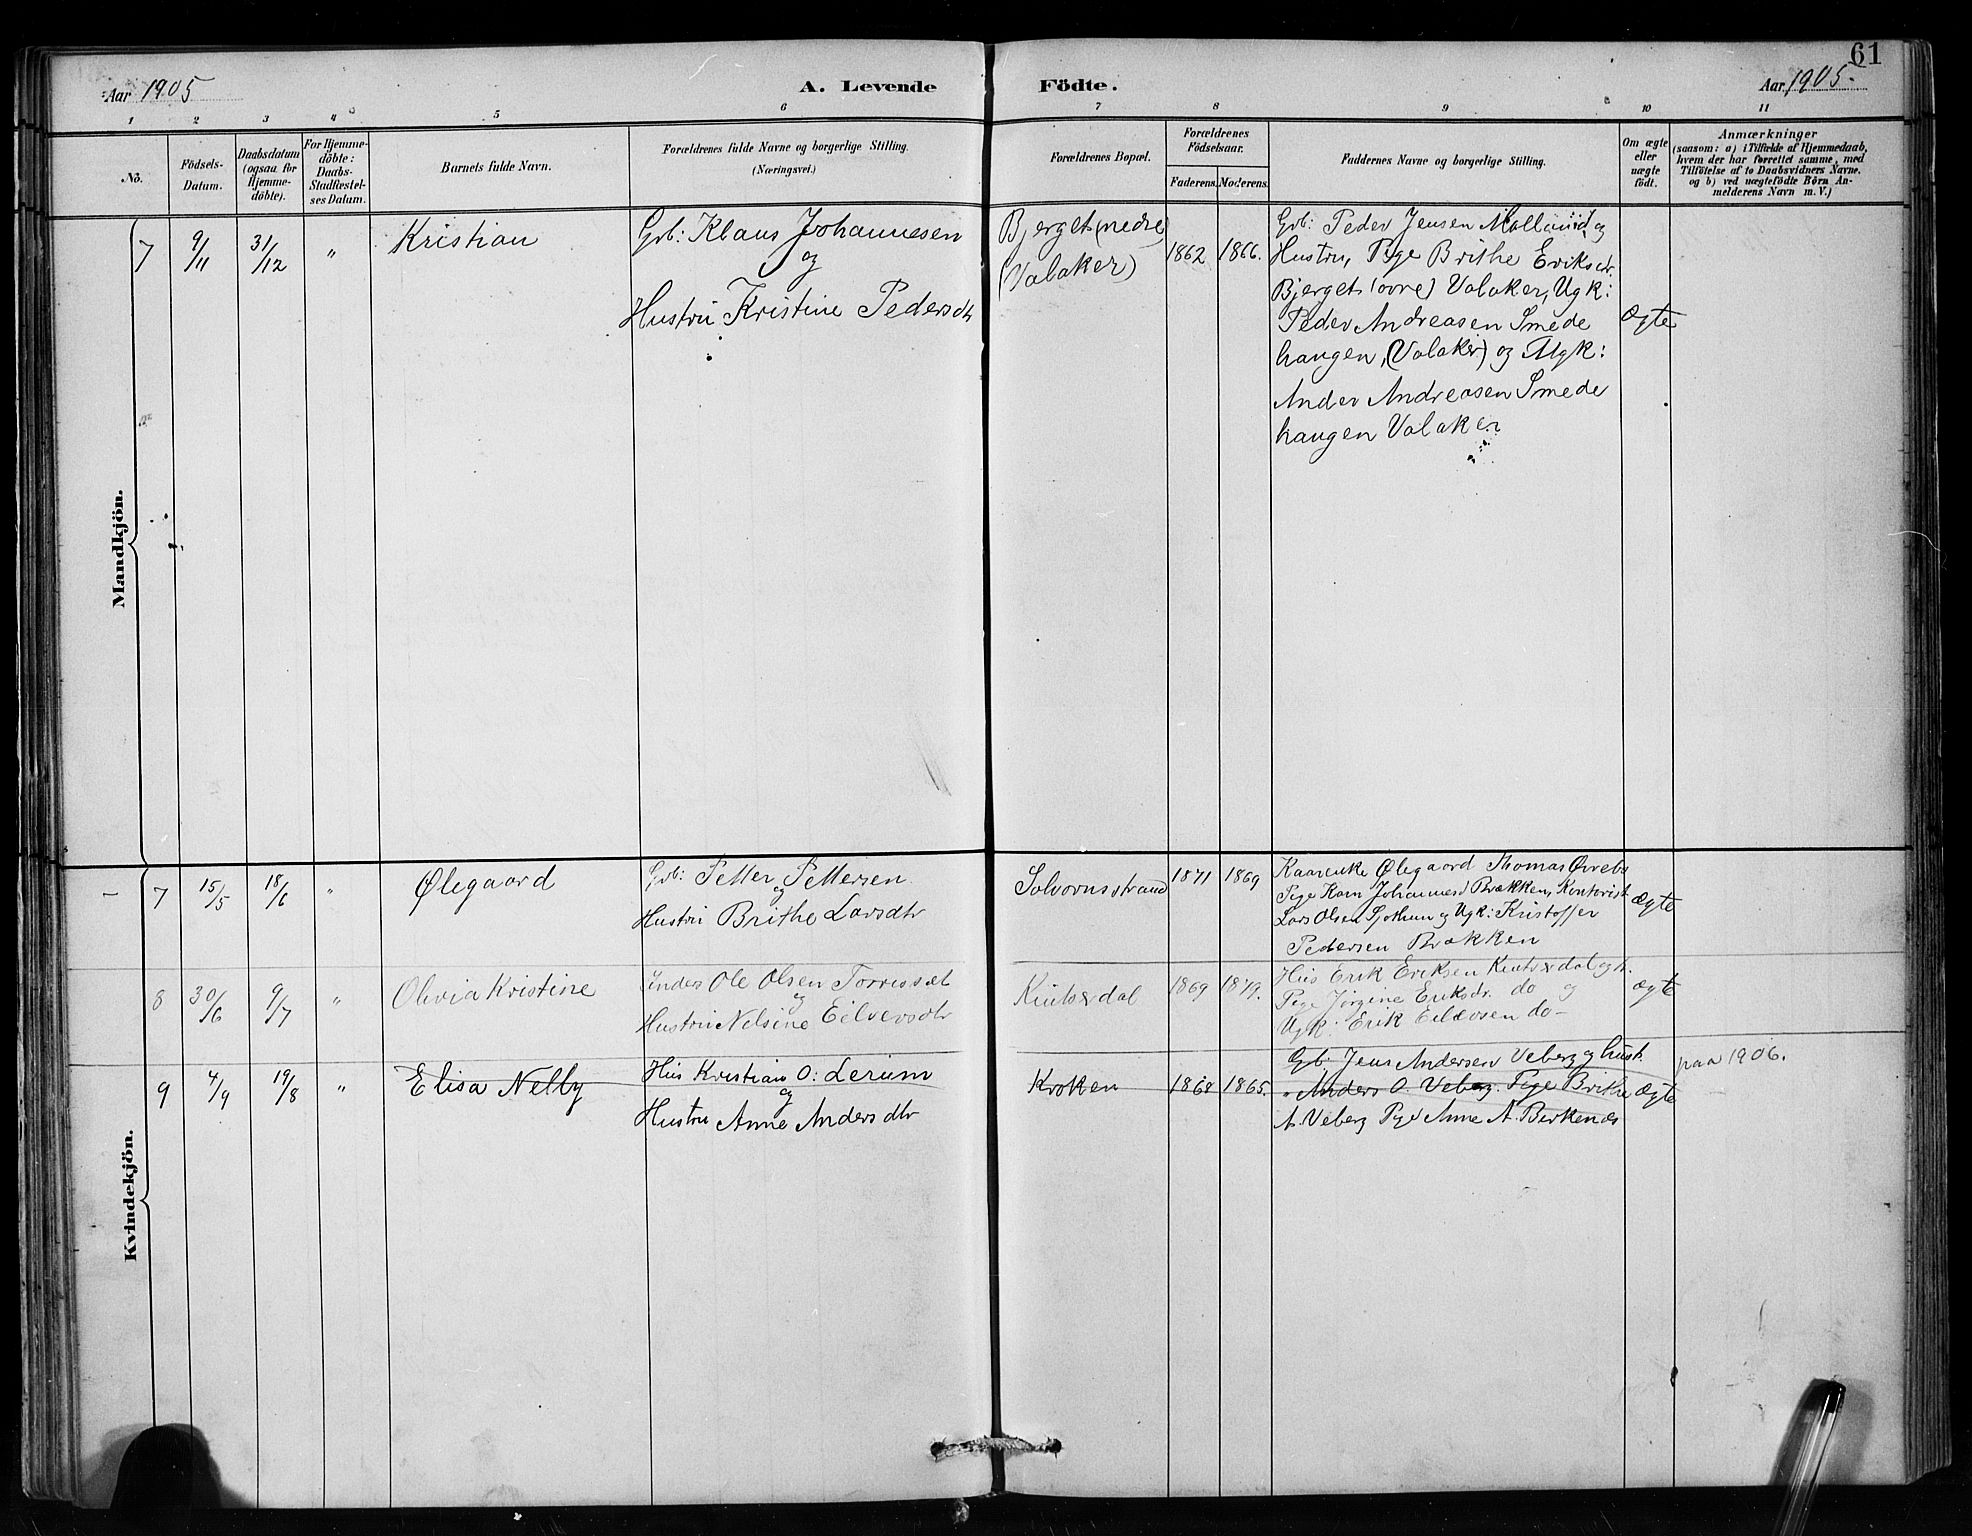 61
Aar 1905
A. Levende
Födte.
Aar 1905.
1 2 3 4 5 6 7 8 9 10 11
No.
Födsels-
Datum.
Daabsdatum
(ogsaa for
Hjemme-
döbte).
For Hjemme-
döbte:
Daabs-
Stadfæstel-
ses Datum.
Barnets fulde Navn.
Forældrenes fulde Navne og borgerlige Stilling.
(Næringsvei.)
Forældrenes Bopæl.
Forældrenes
Födselsaar.
Faderens.
Moderens.
Faddernes Navne og borgerlige Stilling.
Om ægte
eller
uægte
født.
Anmærkninger
(saasom: a) i Tilfælde af Hjemmedaab,
hvem der har forrettet samme, med
Tilföielse af to Daabsvidners Navne.
og b) ved uægtefödte Börn An-
melderens Navn m. V.)
Mandkjön.
7
9/11
31/12
"
Kristian
Grb: Klaus Johannesen
og
Hustru Kristine Pedersdtr
Bjerget (nedre)
(Valaker)
1862
1866.
Grb: Peder Jensen Molland og
Hustru, Pige Brithe Eriksdr.
Bjerget (øvre) Valaker, Ugk:
Peder Andreasen Smede
haugen, (Valaker) og Ugk:
Ander Andreasen Smede
haugen Valaker
Ægte
Kvindekjön.
7
15/5
18/6
"
Ølegaard
Grb: Petter Pettersen
og
Hustru Brithe Larsdtr
Solvornsstrand
1871
1869
Ølegaard Thomas Øvrebø
Pige Karn Johannesd Bækken, Kontorist
Lars Olsen og Ugk: Kristoffer
Pedersen Bækken
ægte
8
30/6
9/7
"
Olivia Kristine
Inders Ole Olsen Torrissæt
og
Hustru Nelsine Eilversdtr
Kintsedal
1869
1879.
Hus Erik Eriksen og h.
Pige Jørgine Eriksdr. do og
Ugk. Erik Eilevsen do-
ægte
9
4/9
19/8
"
Elisa Nelly
Hus Kristian O: Lerum
og
Hustru Anne Andersdtr
Kroken
1868
1865.
Gb: Jens Andersen Veberg og hust.
" Anders O Veberg. Pige Brithe
A. Veberg Pige Anne A. Berkenæs
Ægte
paa 1906.